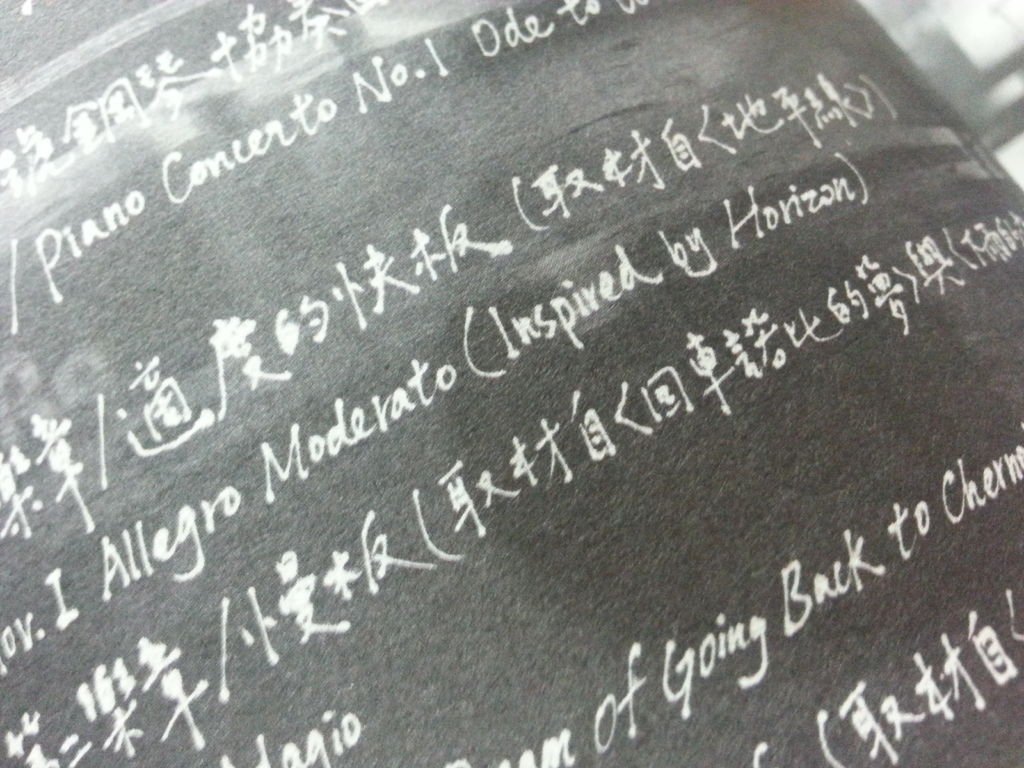 號鋼琴協奏
/ Piano Concerto No.1 Ode to
樂章/適度的快板(取材自〈地平線〉)
Mov. I Allegro Moderato (Inspired by Horizon)
第二樂章/慢板(取材自〈回車諾比的夢〉與〈
Adagio
Dream Of Going Back to
(取材自〈